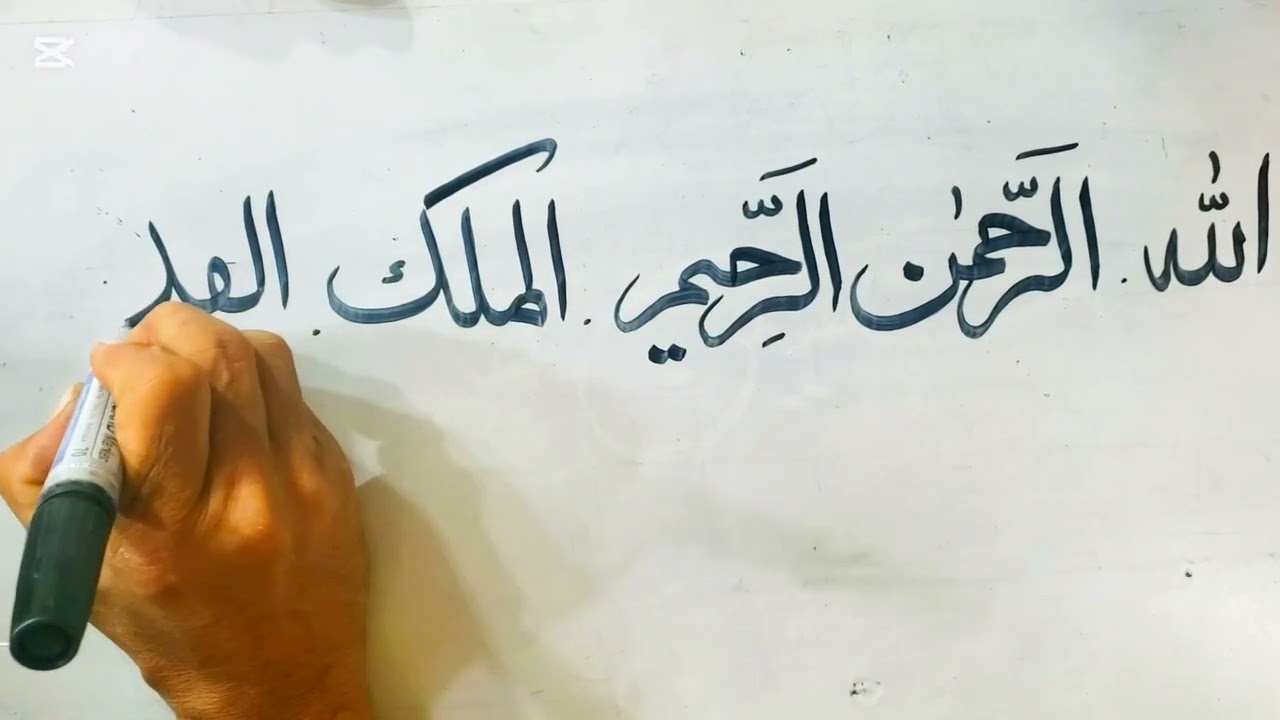 الله . الرَّحمٰن . الَرَّحِيم . الملك . القد